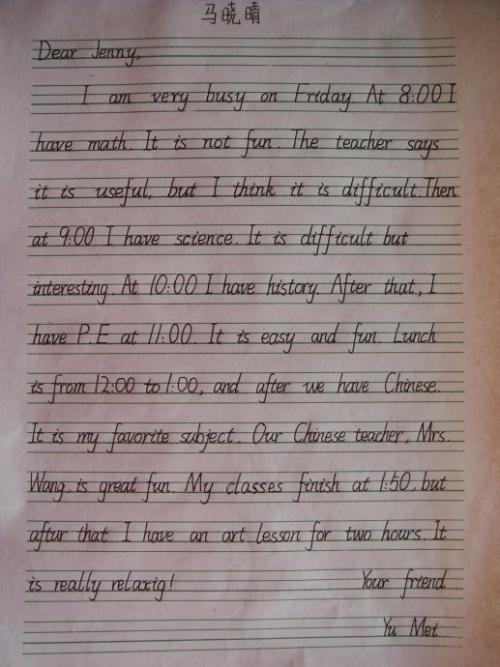 马晓晴
Dear Jenny,
I am very busy on Friday. At 8:00 I
have math. It is not fun. The teacher says
it is useful, but I think it is difficult. Then
at 9:00 I have science. It is difficult but
interesting. At 10:00 I have history. After that, I
have P.E at 11:00. It is easy and fun. Lunch
is from 12:00 to 1:00, and after we have Chinese.
It is my favorite subject. Our Chinese teacher, Mrs.
Wang, is great fun. My classes finish at 1:50, but
aftur that I have an art lesson for two hours. It
is really relaxig! Your friend
Yu Mei